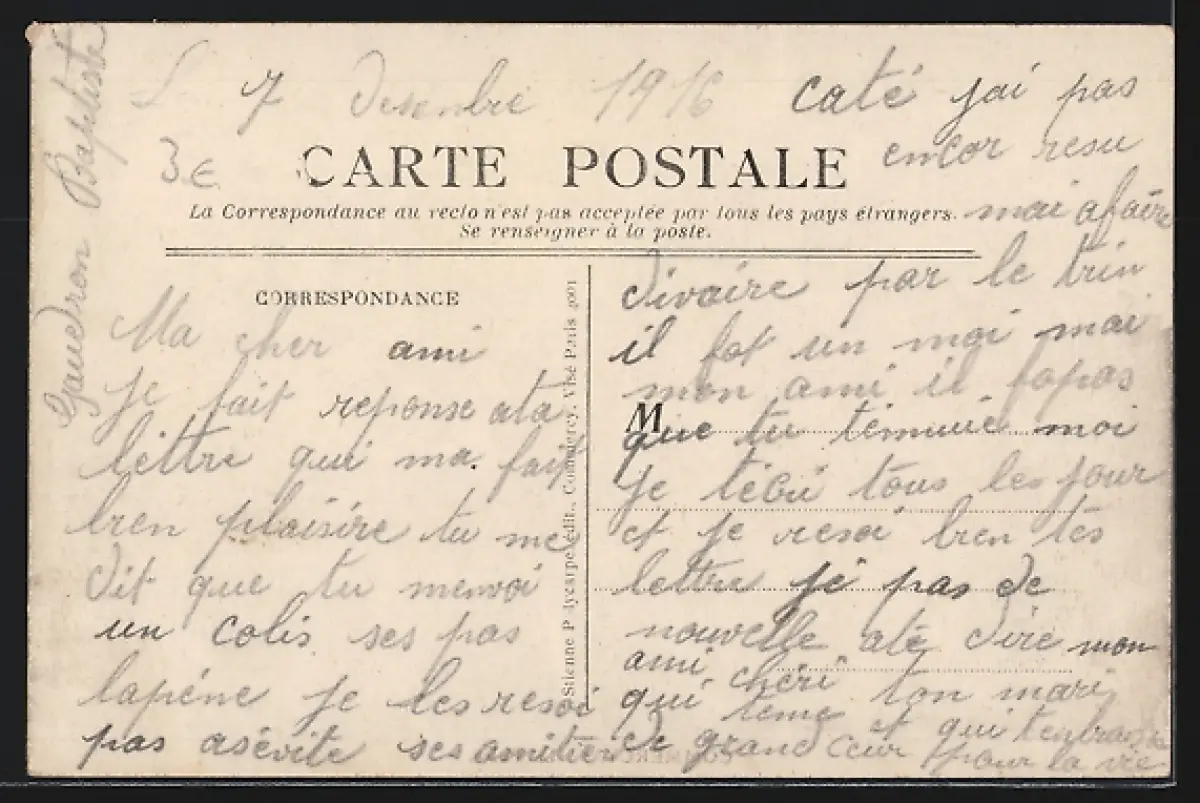 Gaudron Baptiste
L 7 Desenbre 1916
3€
CARTE POSTALE
La Correspondance au recto n'est pas acceptée par tous les pays étrangers.
Se renseigner à la poste.
CORRESPONDANCE
Ma cher ami
Je fait reponse ata
lettre qui ma fait
bien plaisire tu me
dit que tu menvoi
un colis ses pas
lapéne je les resoi
pas asévite ses amitier
Stienne P édit., Commercy. Visé Paris 4001
caté jai pas
encor resu
mai afaire
divaire par le trin
il fot un moi mai
mon ami il fopas
M
que tu moi
je técri tous les jour
et je resoi bien tes
lettre je pas de
nouvelle até dire mon
ami chéri ton mari
qui téme et qui tenbrasse
de grand cœur pour la vie